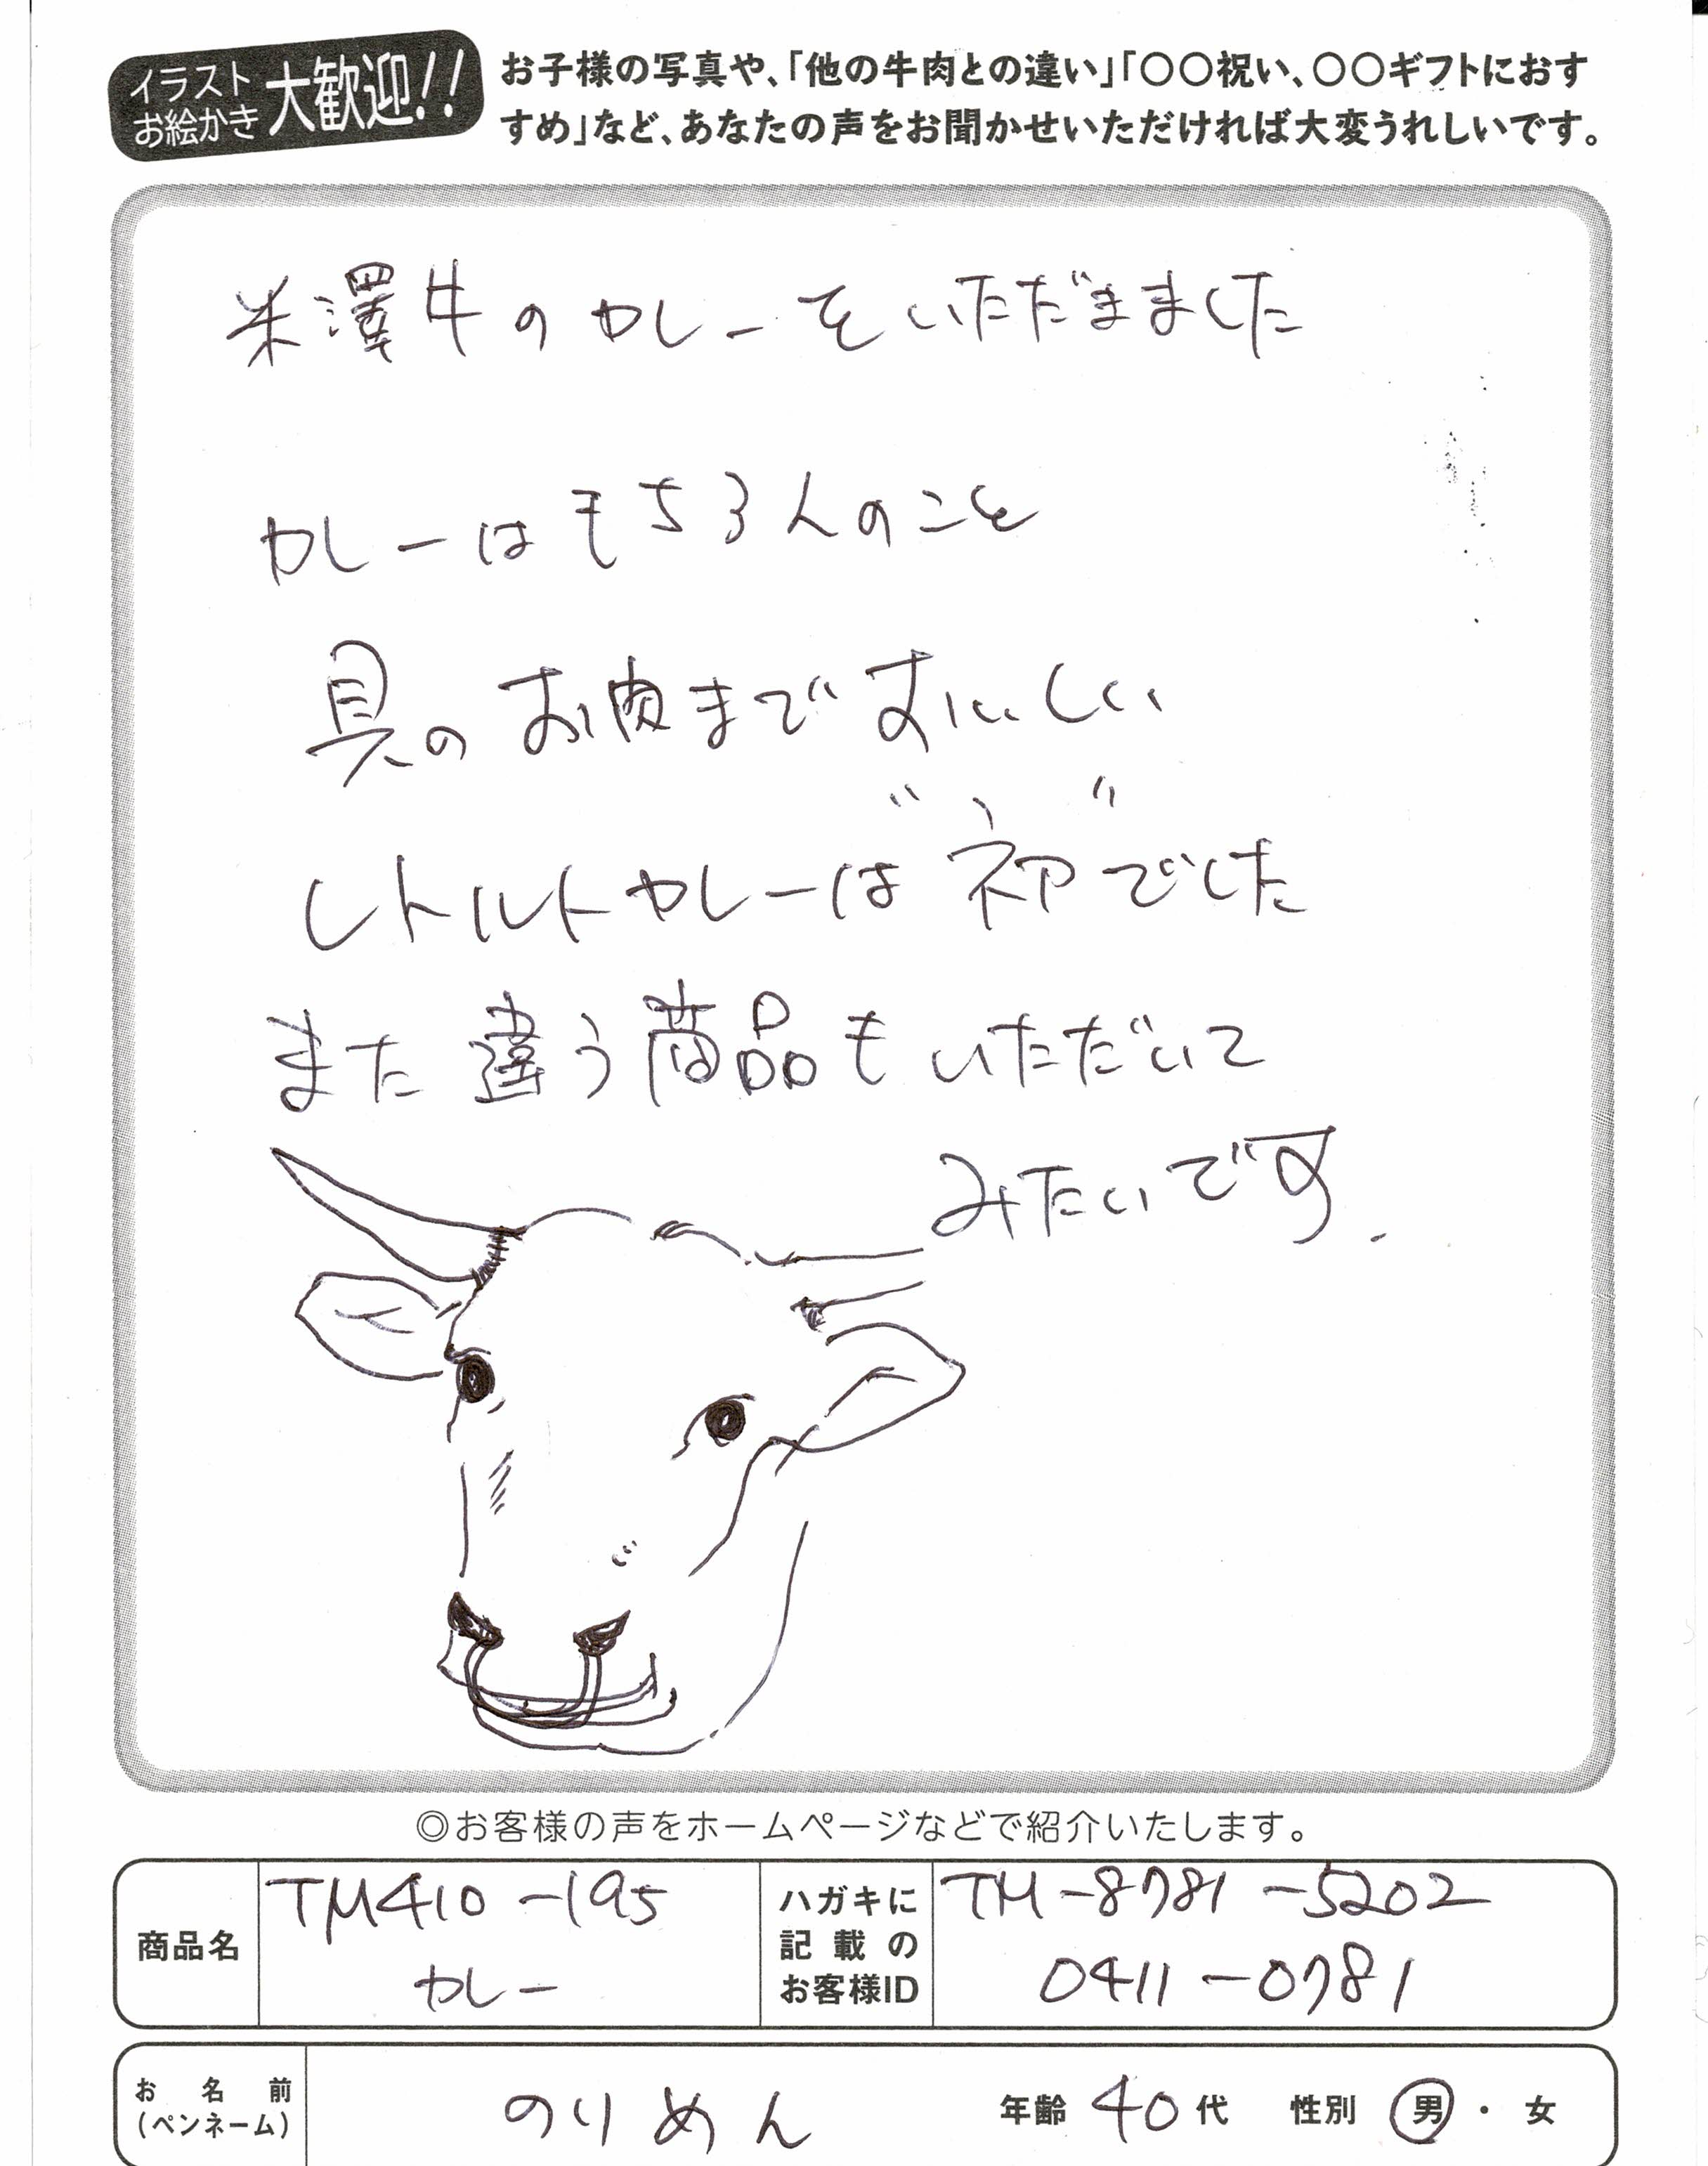 イラスト
お絵かき
大歓迎!!
お子様の写真や、「他の牛肉との違い」「〇〇祝い、〇〇ギフトにおす
すめ」など、あなたの声をお聞かせいただければ大変うれしいです。
米澤牛のカレーをいただまました
カレーはもちろんのこと
具のお肉までおいしい
レトルトカレーは〝初〟でした
また違う商品もいただいて
みたいです.
◎お客様の声をホームページなどで紹介いたします。
商品名
TM410-195
カレー
ハガキに
記載の
お客様ID
TM-8781-5202
0411-0781
お名前
(ペンネーム)
のりめん
年齢 40代 性別 男・女